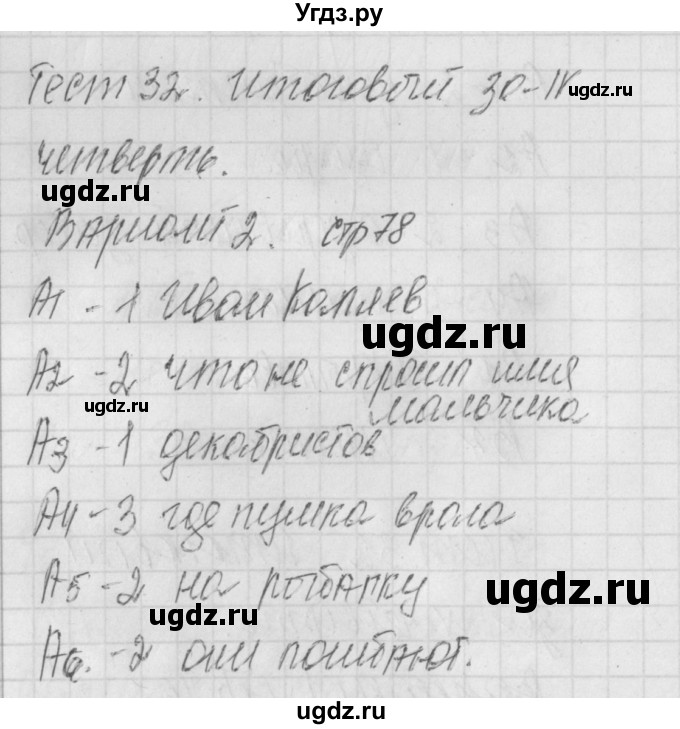 Угдз.ру
Тест 32. Итоговый за IV
четверть.
ugdz.ru
Вариант 2. стр 78
А1 - 1 Иван Каляев
ugdz.ru
А2 - 2 что не спросил имя
мальчика
ugdz.ru
А3 - 1 декабристов
А4 - 3 где пушка врала
А5 - 2 на рыбалку
ugdz.ru
ugdz.ru
А6. - 2 они погибают.
ugdz.ru